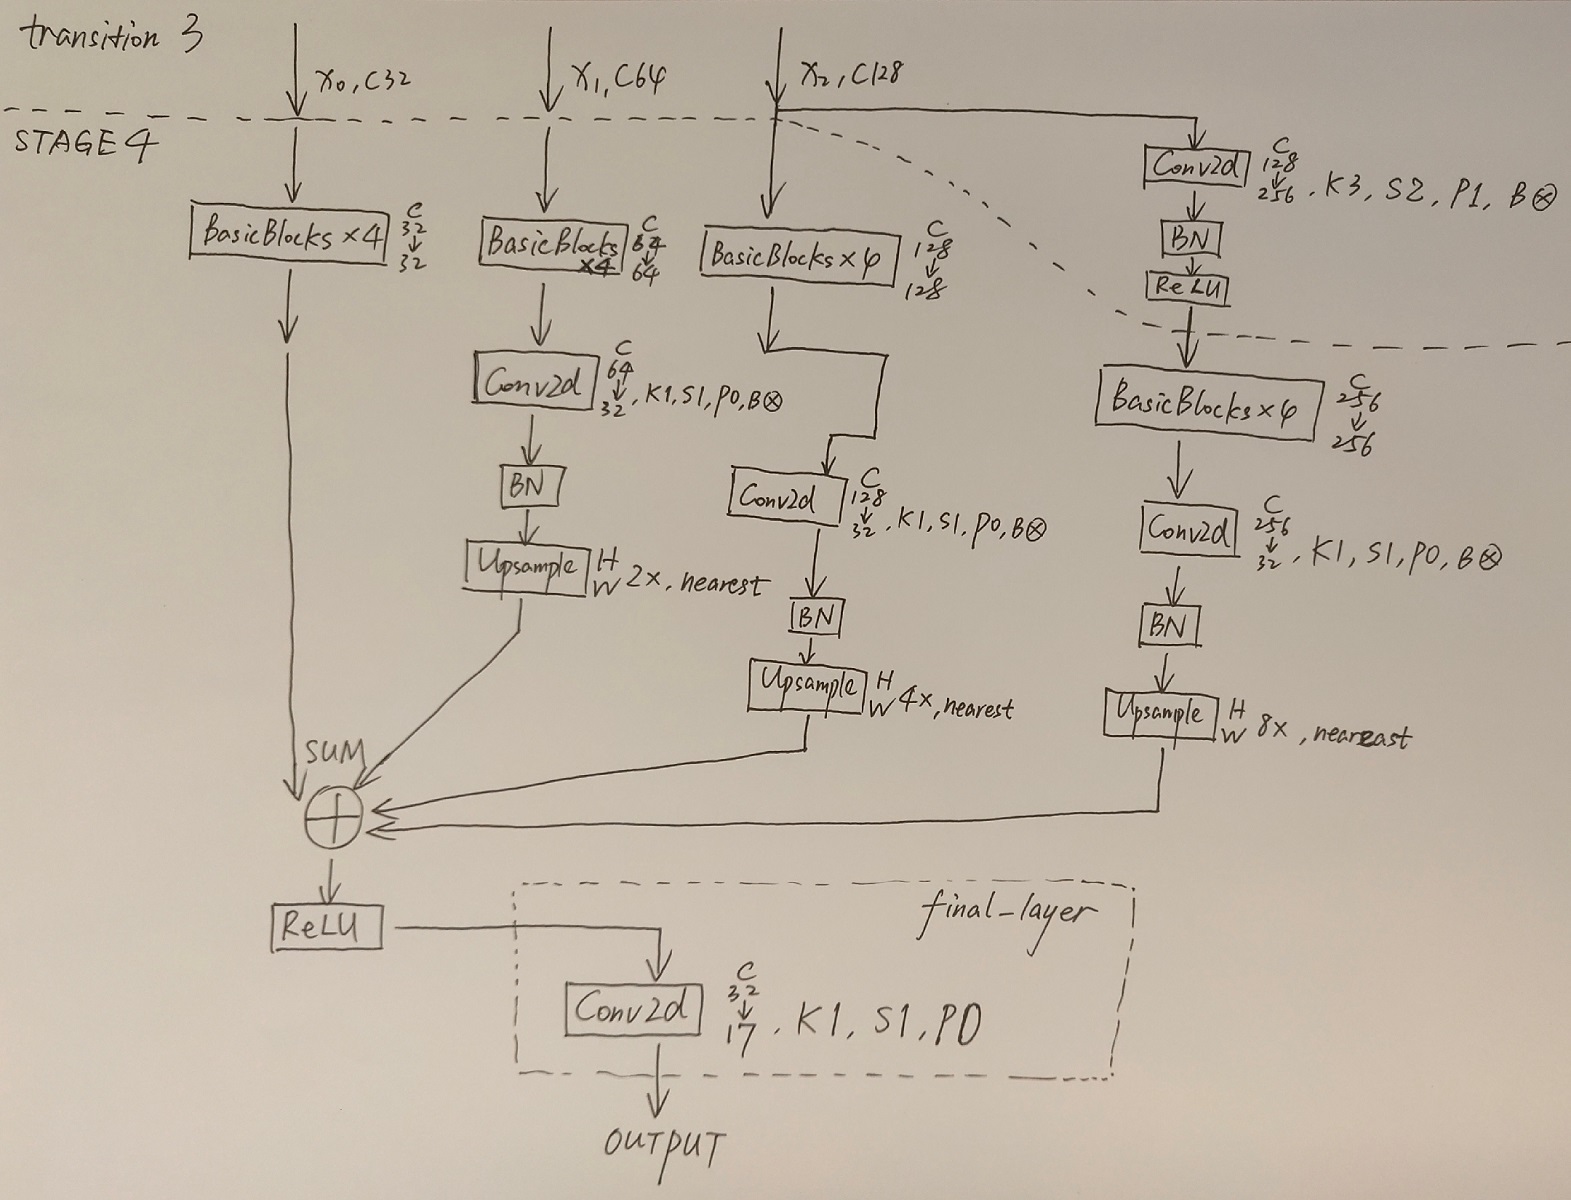 transition 3
X₀, C32
X₁, C64
X₂, C128
STAGE 4
Conv2d
C
128
↓
256, K3, S2, P1, B⊗
BN
ReLU
BasicBlocks ×4
C
32
↓
32
BasicBlocks
×4
C
64
↓
64
BasicBlocks × 4
C
128
↓
128
BasicBlocks × 4
C
256
↓
256
Conv2d
C
64
↓
32, K1, S1, P0, B⊗
BN
Upsample
H
W 2x, nearest
Conv2d
C
128
↓
32, K1, S1, P0, B⊗
BN
Upsample
H
W 4x, nearest
Conv2d
C
256
↓
32, K1, S1, P0, B⊗
BN
Upsample
H
W 8x, neareast
SUM
ReLU
final_layer
Conv2d
C
32
↓
17, K1, S1, P0
OUTPUT